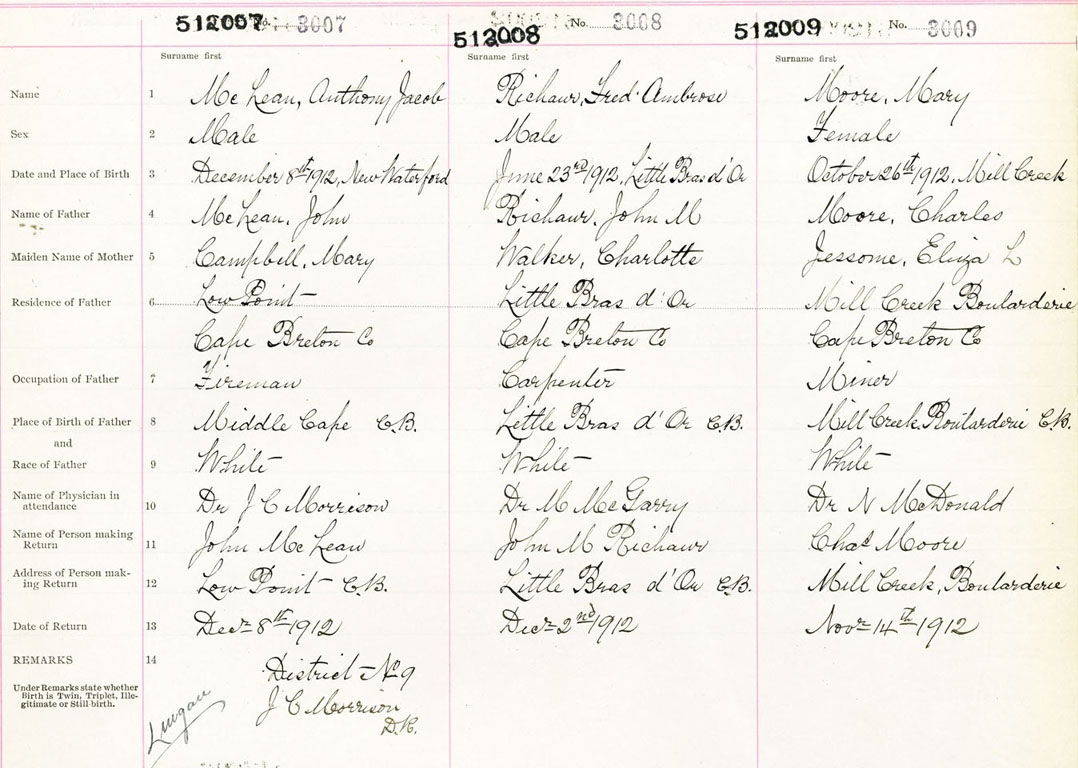 512007 No. 3007 512008 No. 3008 512009 No. 3009
Surname first Surname first Surname first
Name 1 Mc Lean, Anthony Jacob Richawr, Fred Ambrose Moore, Mary
Sex 2 Male Male Female
Date and Place of Birth 3 December 8th 1912, New Waterford June 23rd 1912, Little Bras d'Or October 26th 1912, Mill Creek
Name of Father 4 Mc Lean, John Rishawr, John M Moore, Charles
Maiden Name of Mother 5 Campbell, Mary Walker, Charlotte Jessome, Eliza L
Residence of Father 6 Low Point Little Bras d'Or Mill Creek Boularderie
Cape Breton Co Cape Breton Co Cape Breton Co
Occupation of Father 7 Fireman Carpenter Miner
Place of Birth of Father 8 Middle Cape C.B. Little Bras d'Or C.B. Mill Creek, Boularderie C.B.
and
Race of Father 9 White White White
Name of Physician in
attendance 10 Dr J C Morrison Dr M McGarry Dr N McDonald
Name of Person making
Return 11 John Mc Lean John M Richawr Chas Moore
Address of Person mak-
ing Return 12 Low Point C.B. Little Bras d'Or C.B. Mill Creek, Boularderie
Date of Return 13 Decr 8th 1912 Decr 2nd 1912 Novr 14th 1912
REMARKS 14 District No 9
Under Remarks state whether
Birth is Twin, Triplet, Ille-
gitimate or Still-birth.
J C Morrison
D.R.
Lingan